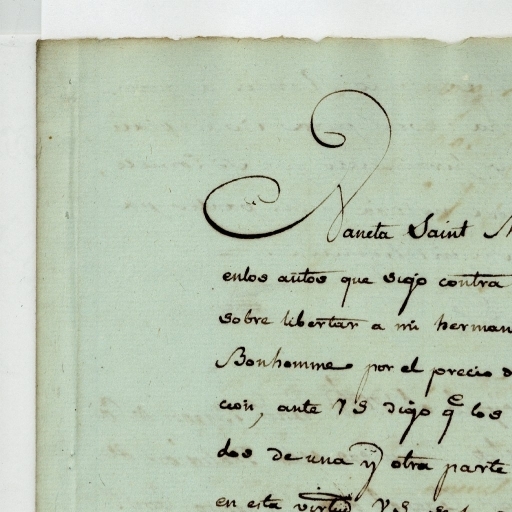 Naneta Saint
enlos autos que sigo contra
sobre libertar a mi herman
Bonhomme por el precio d
cion, ante VS digo q.e los
dos de una y otra parte
en esta virtud VS